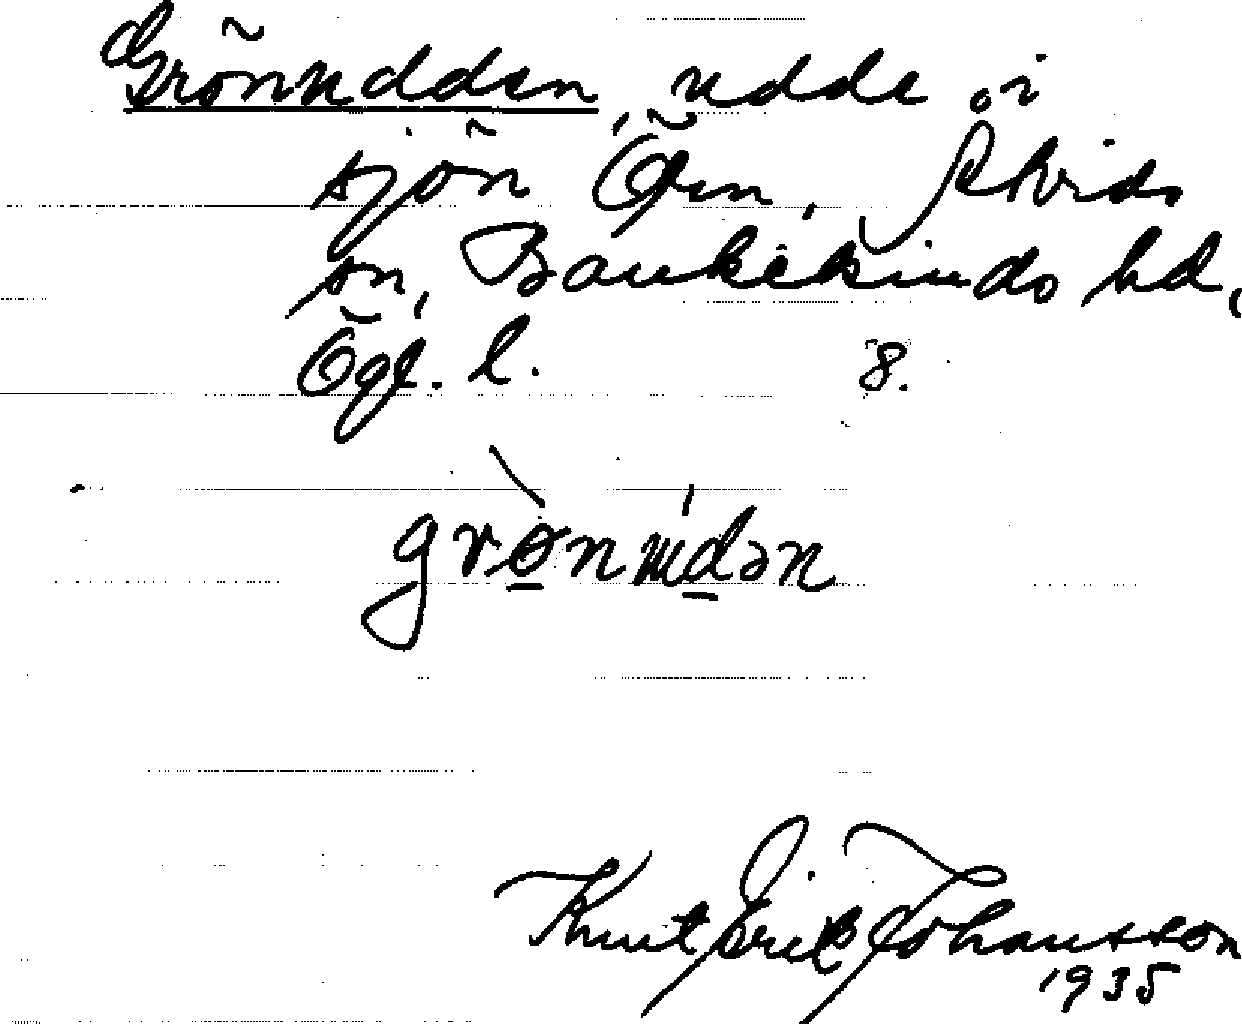 Grönudden, udde i
sjön Ören, Åtvids
sn, Bankekinds hd,
Ögl. l. 8.
grònúdən
Knut Erik Johansson
1935